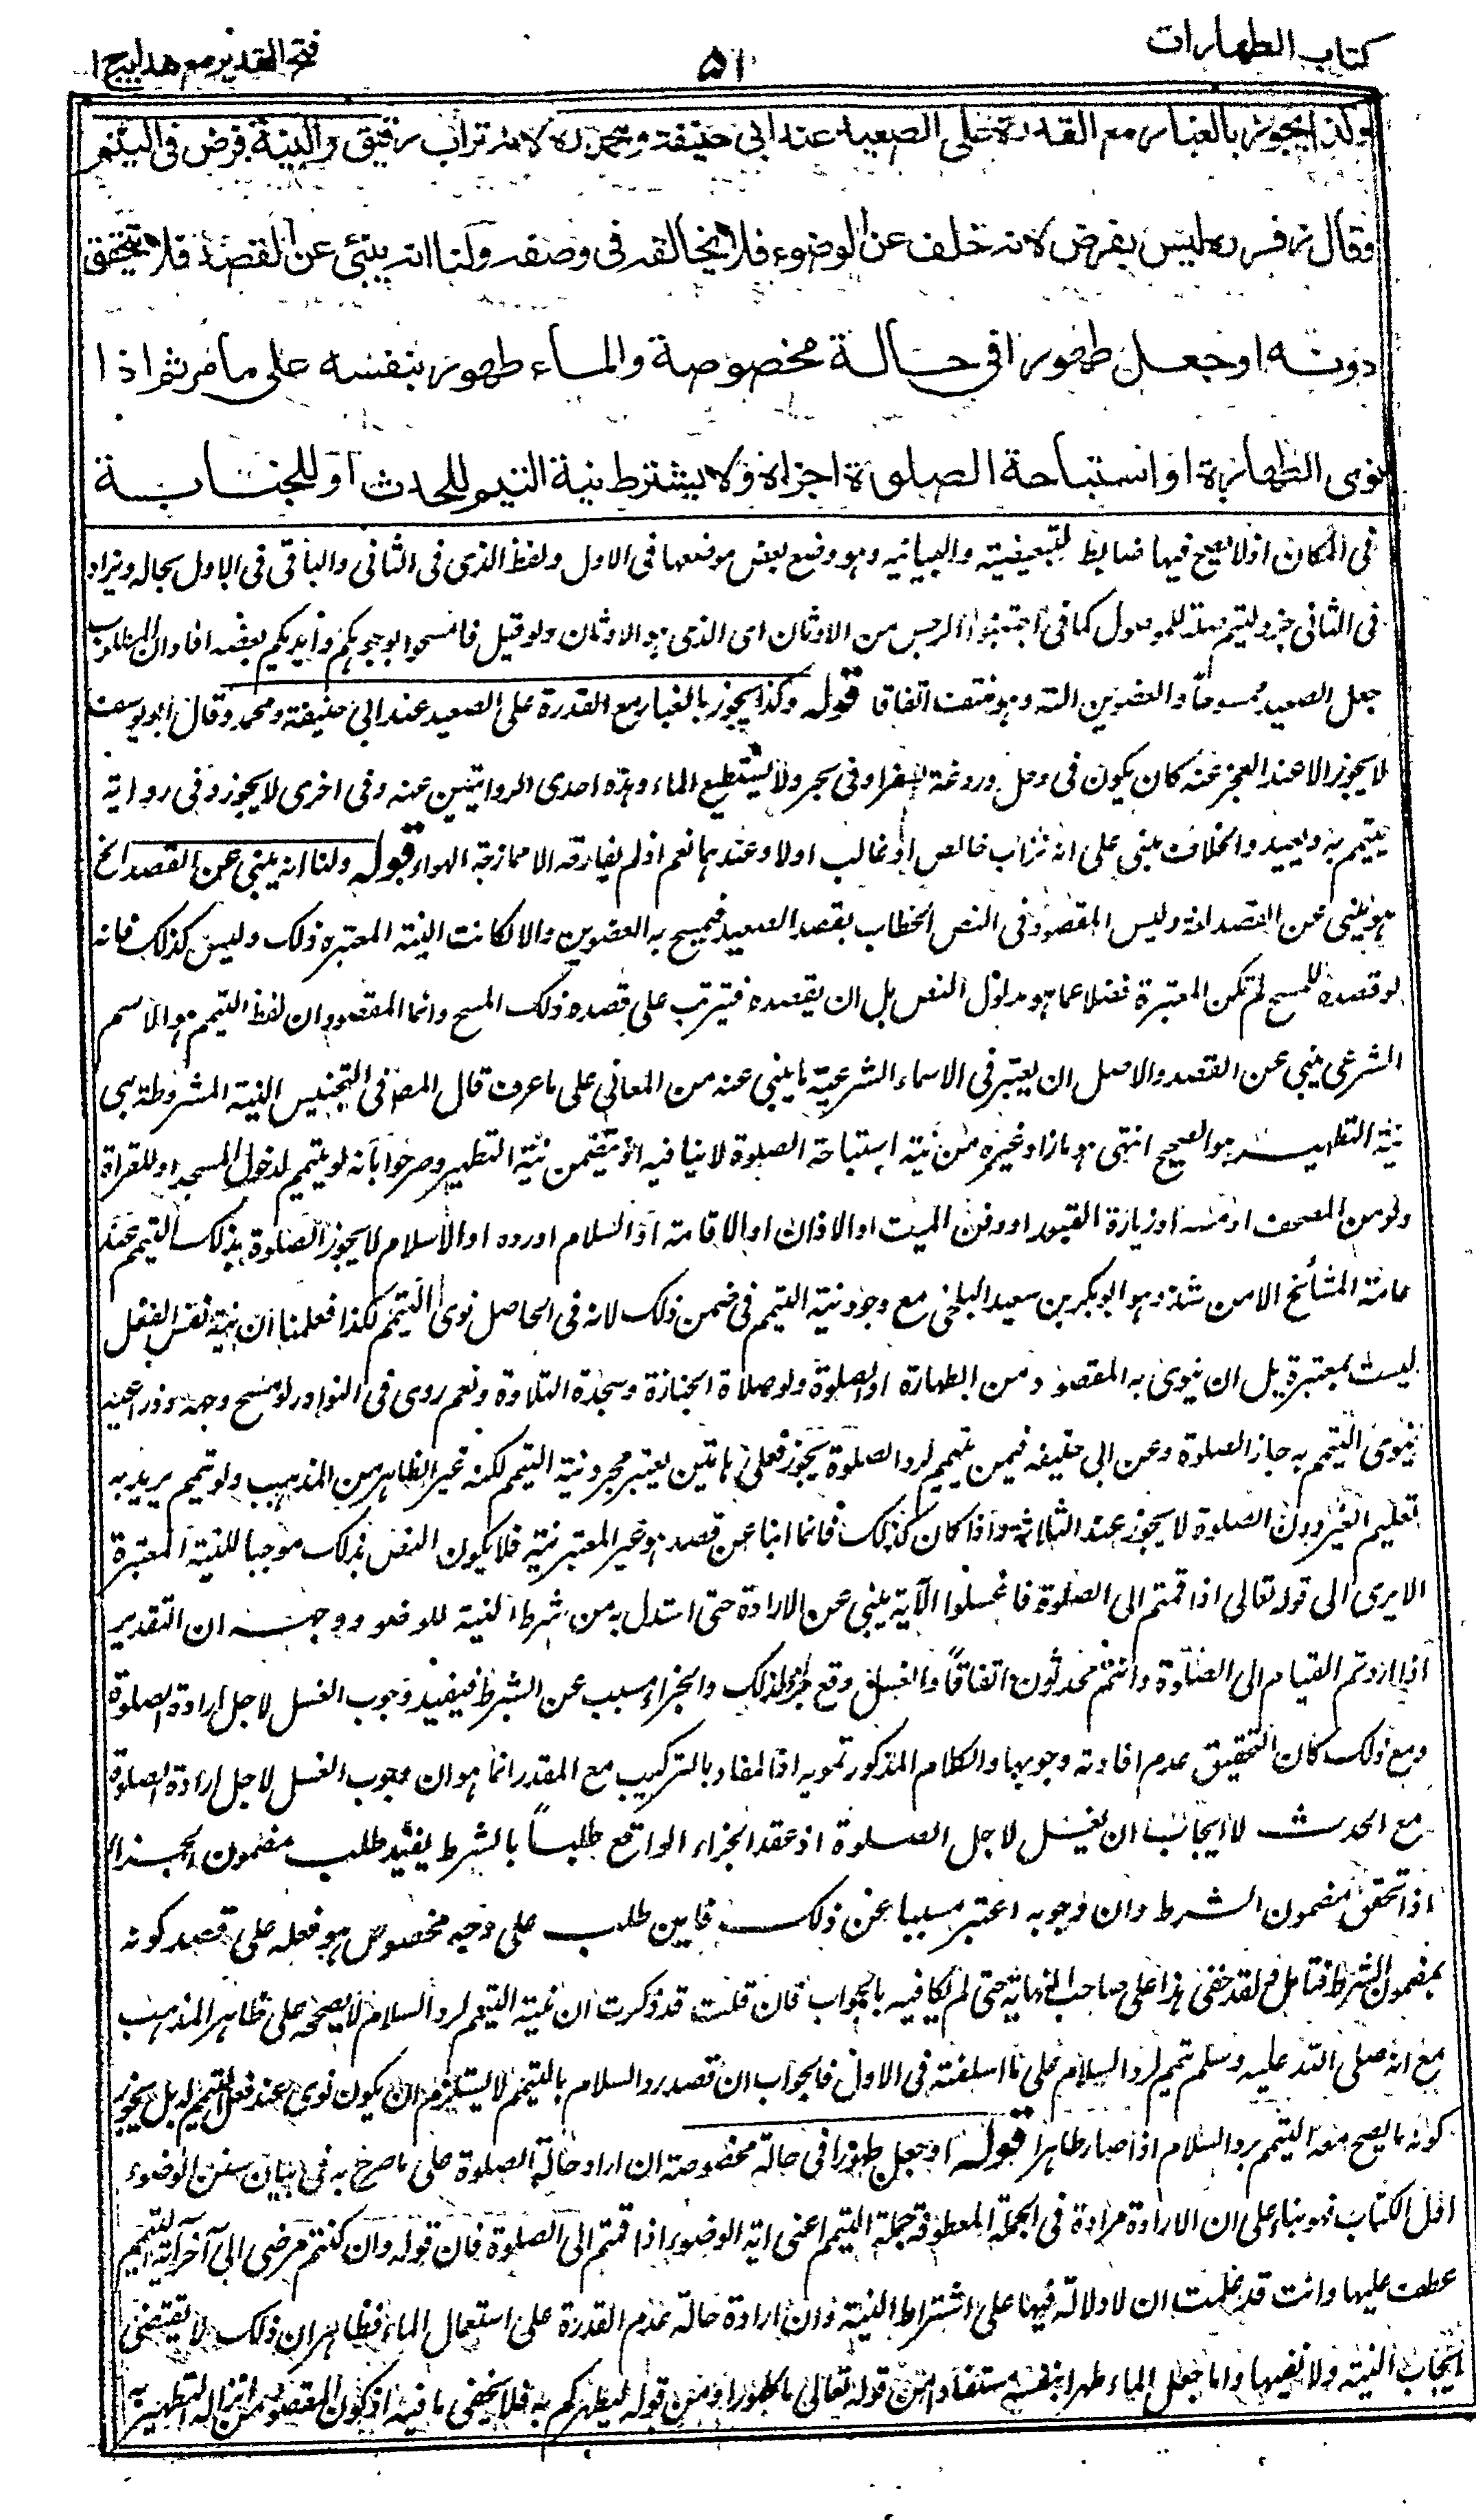 كتاب الطهارات
٥١
فتح القدير مع هدايه ج ا
وكذا يجوز بالغبار مع القدرة على الصعيد عند ابي حنيفة ومحمد ره لانه تراب رقيق والنية فرض في التيمم
وقال زفر ره ليس بفرض لانه خلف عن الوضوء فلا يخالفه في وصفه ولنا انه ينبئ عن القصد فلا يتحقق
دونه او جعل طهورا في حالة مخصوصة والماء طهور بنفسه على ما مر ثم اذا
نوى الطهارة او استباحة الصلوة اجزاه ولا يشترط نية التيمم للحدث او للجنابة
في المكان اذ لا يصح فيها ضابط التبعيضية والبيانيه وهو وضع بعض موضعها في الاول ولفظ الذي في الثاني والباقي في الاول بحاله ويزاد
في الثاني جزء ليتم صلة للموصول كما في اجتنبوا الرجس من الاوثان اى الذى هو الاوثان ولو قيل فامسحوا بوجوهكم وايديكم بعضه افاد ان المطلوب
جعل الصعيد ممسوحا والعضوين الته وهو منتف اتفاقا قوله وكذا يجوز بالغبار مع القدرة على الصعيد عند ابي حنيفة ومحمد وقال ابو يوسف
لا يجوز الا عند العجز عنه كان يكون في وحل وردغة او في بحر ولا يستطيع الماء وهذه احدى الروايتين عنه وفى اخرى لا يجوز وفى رواية
يتيمم به ويعيد والخلاف يبنى على انه تراب خالص او غالب اولا وعندهما نعم اذ لم يفارقه الا ممازجة الهواء قوله ولنا انه ينبئ عن القصد الخ
هو ينبئ عن القصد لغة وليس المقصود فى النص الخطاب بقصد الصعيد فيمسح به العضوين والا لكانت النية المعتبره ذلك وليس كذلك فانه
لو قصده للمسح لم تكن المعتبرة فضلا عما هو مدلول النص بل ان يقصده فيترتب على قصده ذلك المسح وانما المقصود ان لفظ التيمم هو الاسم
الشرعى ينبئ عن القصد والاصل ان يعتبر فى الاسماء الشرعية ما ينبئ عنه من المعاني على ما عرف قال المص فى التجنيس النية المشروطة هى
نية التطهير هو الصحيح انتهى وما زاد غيره من نية استباحة الصلوة لا ينافيه اذ يتضمن نية التطهير وصرحوا بانه لو تيمم لدخول المسجد او للقراة
ولو من المصحف او مسه او زيارة القبور او دفن الميت او الاذان او الاقامة او السلام او رده او الاسلام لا يجوز الصلوة بذلك التيمم عند
عامة المشائخ الا من شذ وهو ابو بكر بن سعيد البلخى مع وجود نية التيمم فى ضمن ذلك لانه فى الحاصل نوى التيمم لكذا فعلمنا ان نية نفس الفعل
ليست بمعتبرة بل ان ينوى به المقصود من الطهارة او الصلوة ولو صلاة الجنازة وسجدة التلاوة ونعم روى فى النوادر لو مسح وجهه وذراعيه
ينوى التيمم به جاز الصلوة وعن ابي حنيفه فيمن تيمم لرد الصلوة يجوز فعلى هاتين يعتبر مجرد نية التيمم لكنه غير الظاهر من المذهب ولو تيمم يريد به
تعليم الغير دون الصلوة لا يجوز عند الثلاثة واذا كان كذلك فانما انبا عن قصد هو غير المعتبر نية فلا يكون النص بذلك موجبا للنية المعتبرة
الا يرى الى قوله تعالى اذا قمتم الى الصلوة فاغسلوا الآية ينبئ عن الارادة حتى استدل به من شرط النية للوضوء ووجهه ان التقدير
اذا اردتم القيام الى الصلوة وانتم محدثون اتفاقا والغسل وقع جزاء لذلك والجزاء مسبب عن الشرط فيفيد وجوب الغسل لاجل ارادة الصلوة
ومع ذلك كان التحقيق عدم افادته وجوبها والكلام المذكور تمويه اذ المفاد بالتركيب مع المقدر انما هو ان وجوب الغسل لاجل ارادة الصلوة
مع الحدث لا ايجاب ان يغسل لاجل الصلوة اذ عقد الجزاء الواقع طلبا بالشرط يفيد طلب مضمون الجزاء
اذا تحقق مضمون الشرط وان وجوبه اعتبر مسببا عن ذلك فاين طلب على وجه مخصوص هو فعله على قصد كونه
بمضمون الشرط فتامل فلقد خفى هذا على صاحب النهاية حتى لم يكافيه بالجواب فان قلت قد ذكرت ان نية التيمم لرد السلام لا يصححه على ظاهر المذهب
مع انه صلى الله عليه وسلم تيمم لرد السلام على ما اسلفته فى الاول فالجواب ان قصد رد السلام بالتيمم لا يستلزم ان يكون نوى عند فعل التيمم له بل يجوز
كونه ما يصح معه التيمم برد السلام اذا صار طاهرا قوله او جعل طهورا فى حالة مخصوصة ان اراد حالة الصلوة على ما صرح به فى بيان سنن الوضوء
اول الكتاب فهو بناء على ان الارادة مرادة فى الجملة المعطوفة جملة التيمم اعنى اية الوضوء اذا قمتم الى الصلوة فان قوله وان كنتم مرضى الى آخر آية التيمم
عطف عليها وانت قد علمت ان لا دلالة فيها على اشتراط النية وان ارادة حالة عدم القدرة على استعمال الماء فظاهر ان ذلك لا يقتضى
ايجاب النية ولا نفيها واما جعل الماء طهرا بنفسه مستفادا من قوله تعالى ماء طهورا ومن قوله ليطهركم به فلا يخفى ما فيه اذ كون المقصود من انزاله التطهير به